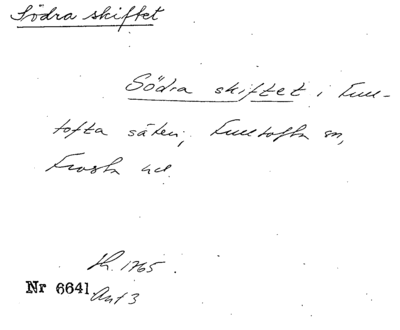 Södra skiftet
Södra skiftet i Full-
tofta säteri, Fulltofta sn,
Frosta hd.
Sk. 1765.
Nr 6641 Akt 3